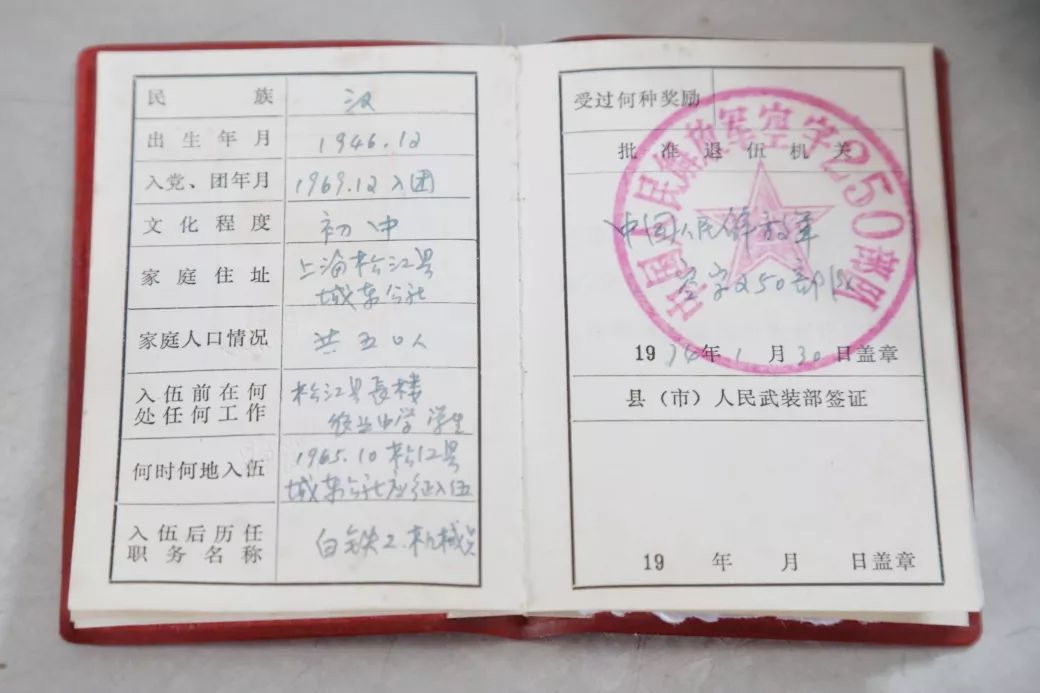 民族 汉
出生年月 1946.12
入党、团年月 1969.12 入团
文化程度 初中
家庭住址 上海松江县
城东公社
家庭人口情况 共五口人
入伍前在何
处任何工作
松江县長楼
农业中学 学生
何时何地入伍
1965.10 松江县
城东公社应征入伍
入伍后历任
职务名称
白铁工.机械员
受过何种奖励
中国人民解放军空字250部队
批准退伍机关
中国人民解放军
空字250部队
1974年1月30日盖章
县（市）人民武装部签证
19 年 月 日盖章